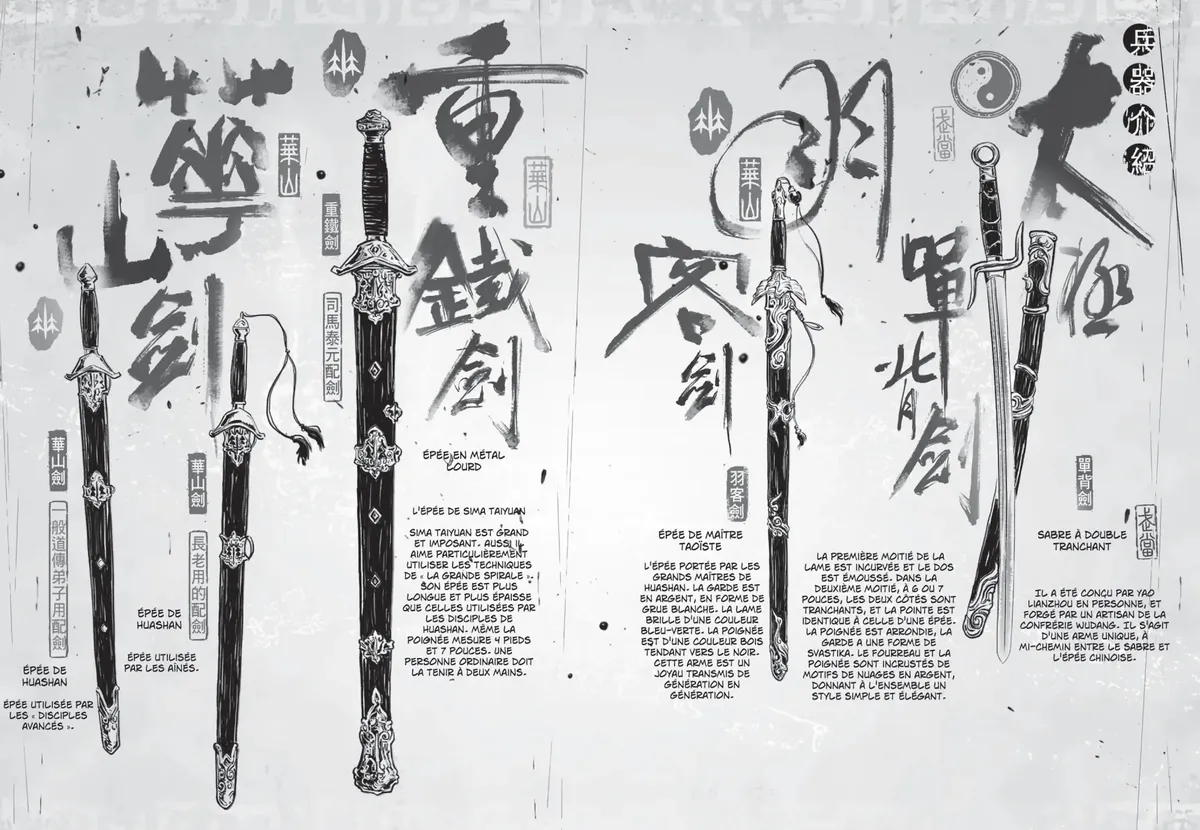 兵器介紹
太極
武當
單背劍
單背劍
武當
SABRE À DOUBLE
TRANCHANT
IL A ÉTÉ CONÇU PAR YAO
LIANZHOU EN PERSONNE, ET
FORGÉ PAR UN ARTISAN DE LA
CONFRÉRIE WUDANG. IL S'AGIT
D'UNE ARME UNIQUE, À
MI-CHEMIN ENTRE LE SABRE ET
L'ÉPÉE CHINOISE.
LA PREMIÈRE MOITIÉ DE LA
LAME EST INCURVÉE ET LE DOS
EST ÉMOUSSÉ. DANS LA
DEUXIÈME MOITIÉ, À 6 OU 7
POUCES, LES DEUX CÔTÉS SONT
TRANCHANTS, ET LA POINTE EST
IDENTIQUE À CELLE D'UNE ÉPÉE.
LA POIGNÉE EST ARRONDIE, LA
GARDE A UNE FORME DE
SVASTIKA. LE FOURREAU ET LA
POIGNÉE SONT INCRUSTÉS DE
MOTIFS DE NUAGES EN ARGENT,
DONNANT À L'ENSEMBLE UN
STYLE SIMPLE ET ÉLÉGANT.
羽客劍
華山
羽客劍
ÉPÉE DE MAÎTRE
TAOÏSTE
L'ÉPÉE PORTÉE PAR LES
GRANDS MAÎTRES DE
HUASHAN. LA GARDE EST
EN ARGENT, EN FORME DE
GRUE BLANCHE. LA LAME
BRILLE D'UNE COULEUR
BLEU-VERTE. LA POIGNÉE
EST D'UNE COULEUR BOIS
TENDANT VERS LE NOIR.
CETTE ARME EST UN
JOYAU TRANSMIS DE
GÉNÉRATION EN
GÉNÉRATION.
重鐵劍
華山
重鐵劍
司馬泰元配劍
ÉPÉE EN MÉTAL
LOURD
L'ÉPÉE DE SIMA TAIYUAN
SIMA TAIYUAN EST GRAND
ET IMPOSANT. AUSSI IL
AIME PARTICULIÈREMENT
UTILISER LES TECHNIQUES
DE « LA GRANDE SPIRALE ».
SON ÉPÉE EST PLUS
LONGUE ET PLUS ÉPAISSE
QUE CELLES UTILISÉES PAR
LES DISCIPLES DE
HUASHAN. MÊME LA
POIGNÉE MESURE 4 PIEDS
ET 7 POUCES. UNE
PERSONNE ORDINAIRE DOIT
LA TENIR À DEUX MAINS.
華山劍
華山
華山劍
長老用的配劍
ÉPÉE DE
HUASHAN
ÉPÉE UTILISÉE
PAR LES AÎNÉS.
華山劍
一般道傳弟子用配劍
ÉPÉE DE
HUASHAN
ÉPÉE UTILISÉE PAR
LES « DISCIPLES
AVANCÉS ».